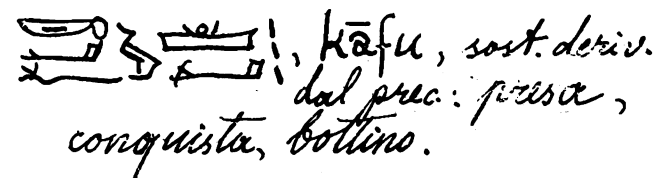 , kāfu, sost. deriv.
dal prec.: presa,
conquista, bottino.